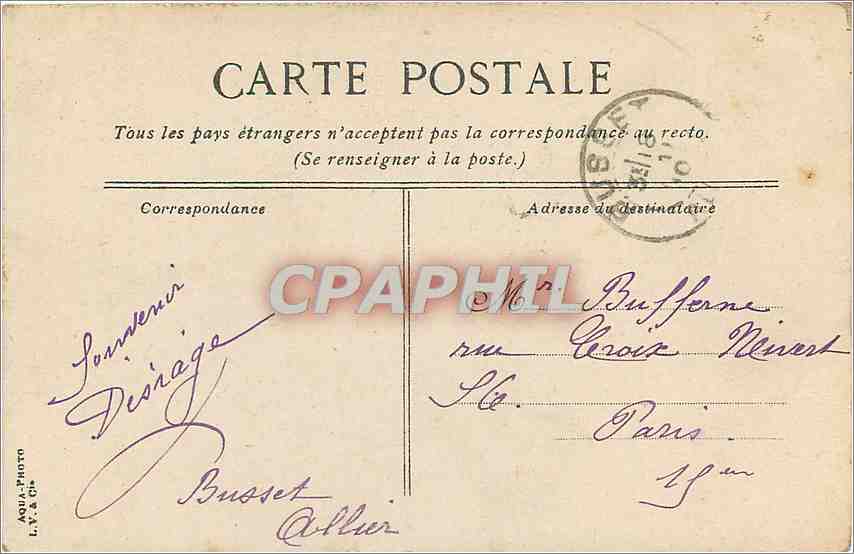 CARTE POSTALE
Tous les pays étrangers n'acceptent pas la correspondance au recto.
(Se renseigner à la poste.)
BUSSET
Correspondance
Adresse du destinataire
CPAPHIL
Souvenir
Busset
Allier
Mr. Bufferne
rue Croix Nivert
Paris
15em
AQUA-PHOTO
L.V. & Cie